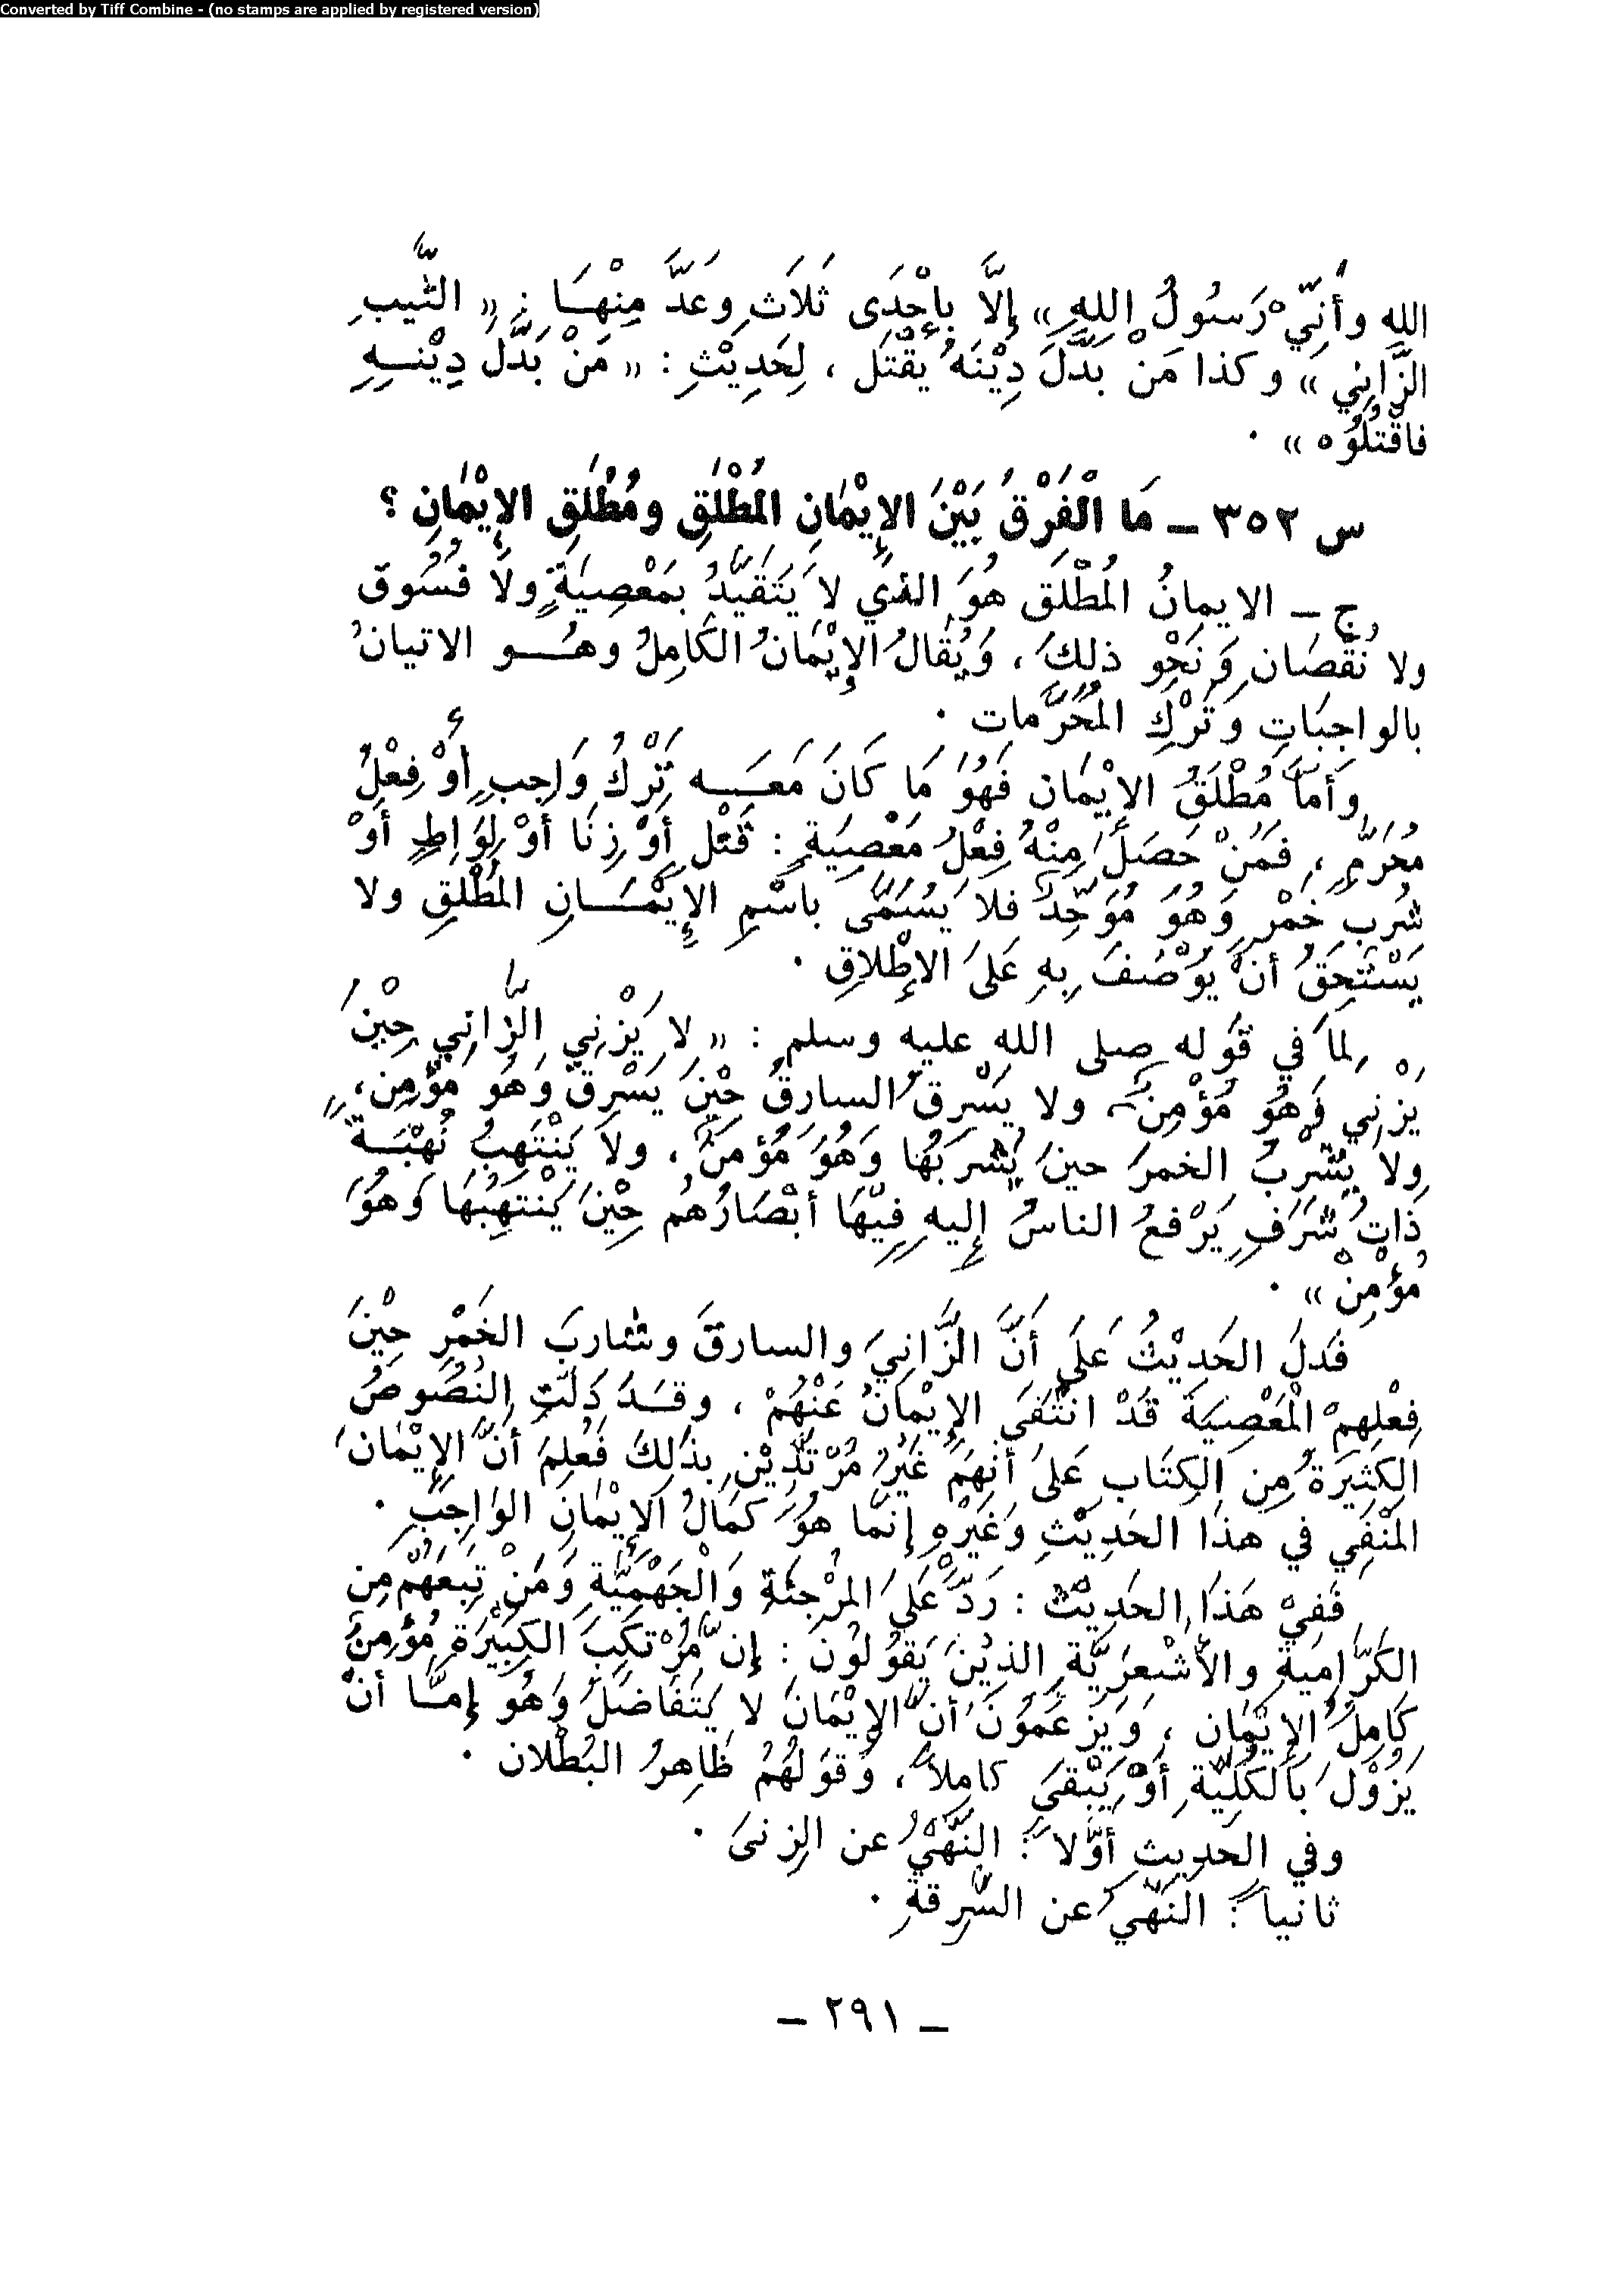 Converted by Tiff Combine - (no stamps are applied by registered version)
اللهِ وأَنِّيْ رَسُولُ اللهِ » إِلاَّ بِإِحْدَى ثَلاَثٍ وعَدَّ مِنْهَا : « الثَّيبِ
الزَّانِي » وكذا مَنْ بَدَّلَ دِيْنَهُ يُقْتَل ، لِحَدِيْثِ : « مَنْ بَدَّلَ دِيْنَهِ
فاقْتُلُوُه » .
س ٣٥٢ – مَا الْفَرْقُ بَيْنَ الإِيْمَانِ المُطْلَقِ ومُطْلَقِ الإِيْمَانِ ؟
ج – الايمانُ المُطْلَق هُوَ الذي لاَ يَتَقَيَّدُ بمَعْصِيَةٍ ولاَ فُسُوق
ولا نُقْصَانٍ وَنَحْوِ ذلِكَ ، وَيُقَالُ الإِيْمَانُ الكَامِلُ وهُو الاتيانُ
بالواجِبَاتِ وتَرْكِ المُحَرَّمات .
وَأَمَّا مُطْلَقُ الإِيْمَانِ فَهُوَ مَا كَانَ مَعَهِ تَرْكُ وَاجِبٍ أَوْ فِعْلُ
مُحَرَّمٍ ، فَمَنْ حَصَلَ مِنْهُ فِعْلُ مَعْصِيَةٍ : قَتْلٍ أَوْ زِنَا أَوْ لِوَاطٍ أَوْ
شُربِ خَمْرٍ وَهُوَ مُوَحِّدٌ فلا يُسَمَّى باسْمِ الإِيْمَانِ المُطْلَقِ ولا
يَسْتَحِقُ أنْ يُوْصَفَ بِهِ عَلَى الإِطْلاقِ .
لِما في قَوله صلى الله عليه وسلم : « لا يَزْنِي الزَّانِي حِيْنَ
يَزْنِي وَهُوَ مُؤْمِنٌ ، ولا يَسْرقُ السارقُ حِيْنَ يَسْرِقُ وَهُوَ مُؤْمِنٌ ،
ولا يَشْرَبُ الخمرَ حينَ يَشْرَبَهُا وَهُوَ مُؤمنٌ ، ولاَ يَنْتَهِبُ نُهْبَةً
ذَاتُ شَرَفٍ يَرْفعُ الناسُ إِليهِ فِيْهَا أَبْصَارُهُم حِيْنَ يَنْتهِبُهَا وَهُوَ
مُؤْمِنْ » .
فَدلَ الحَدِيْثُ عَلَى أَنَّ الزَّانيَ والسارقَ وشاربَ الخَمْرِ حِيْنَ
فِعْلِهِمْ الْمَعْصِيَةَ قَدْ انْتَفَى الإِيْمَانُ عَنْهُمْ ، وقَدَ دَلَّتِ النُصُوصُ
الكثِيرَةُ مِن الكِتَابِ عَلىَ أَنهمَ غَيْرُ مُرْتَدِّيْنِ بذلكَ فَعُلِمَ أَنَّ الإِيْمَانَ
المَنْفِي في هذَا الحَدِيْثِ وَغَيْرِهِ إِنَّما هُوَ كَمَالُ الإِيْمَانِ الوَاجِبِ .
فَفِيْ هَذَا الحَدِيْث : رَدٌّ عَلَى المُرْجئَةِ وَالْجَهْمِيَّةِ وَمَنْ تَبِعَهُمْ مِن
الكَرَّاميةِ والأشْعرَيَّةِ الذِيْنَ يَقوُلوُنَ : إِنَّ مُرْتكِبَ الكَبِيْرَةِ مُؤمِنُ
كَامِلُ الإِيْمَانِ ، وَيَزعَمُوَنَ أنَّ الإِيْمَانَ لا يَتَفَاضَلُ وَهُو إِمَّا أنْ
يَزُوْلَ بَالكُلِيَّةِ أَوْ يَبْقىَ كاملاً ، وَقوَلهُمُ ظَاهِرُ البُطْلان .
وفي الحديثِ أَوَّلاً : النَّهْيُ عن الزِنىَ .
ثانياً : النَهْيَ عن السَّرِقةِ .
– ٢٩١ –